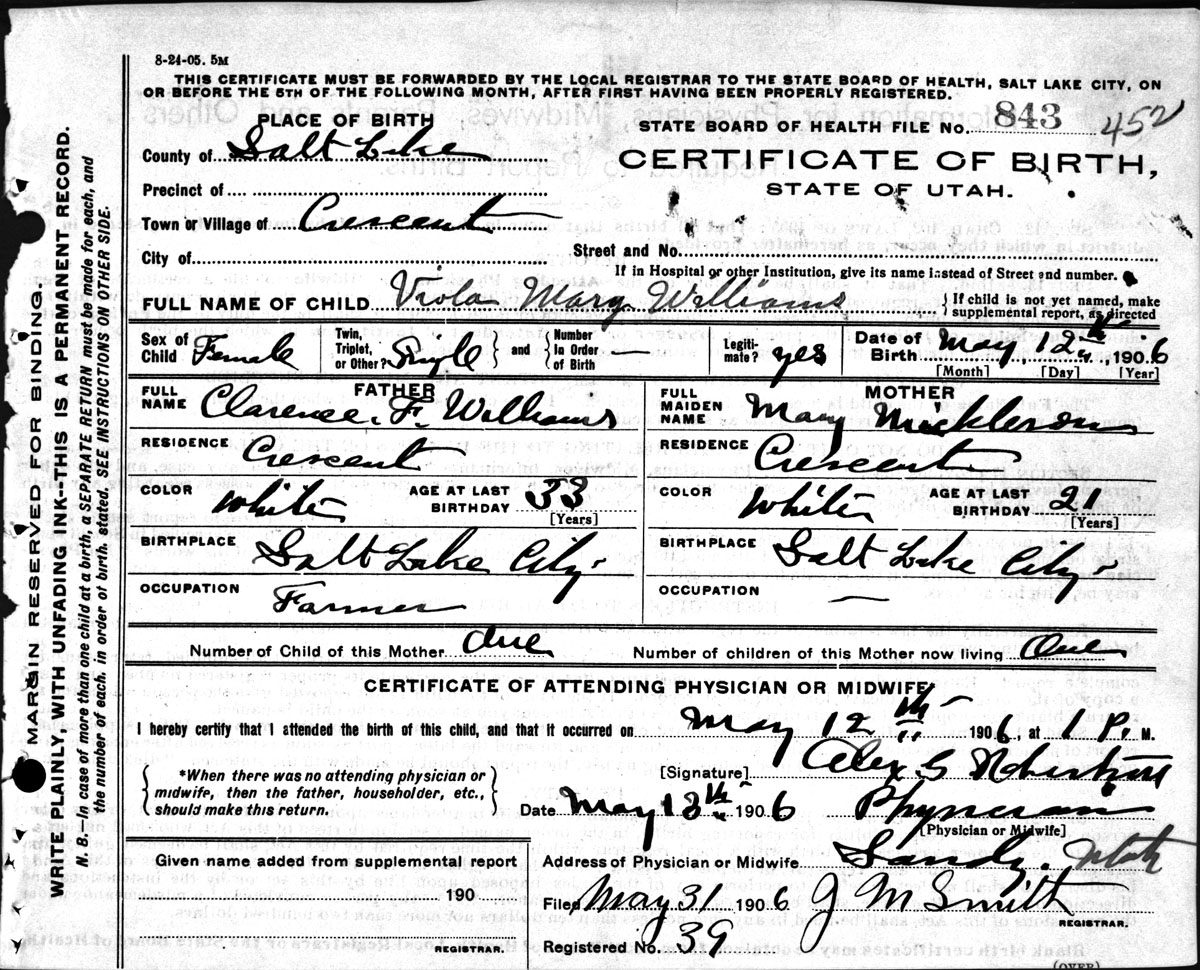 8-24-05. 5M
THIS CERTIFICATE MUST BE FORWARDED BY THE LOCAL REGISTRAR TO THE STATE BOARD OF HEALTH, SALT LAKE CITY, ON
OR BEFORE THE 5TH OF THE FOLLOWING MONTH, AFTER FIRST HAVING BEEN PROPERLY REGISTERED.
PLACE OF BIRTH
STATE BOARD OF HEALTH FILE No. 843 452
County of Salt Lake
CERTIFICATE OF BIRTH,
STATE OF UTAH.
Precinct of
Town or Village of Crescent
City of
Street and No.
If in Hospital or other Institution, give its name instead of Street and number.
FULL NAME OF CHILD Viola Mary Williams
If child is not yet named, make
supplemental report, as directed
Sex of Child Female
Twin, Triplet, or Other? Single and Number in Order of Birth —
Legitimate? yes
Date of Birth May 12th, 1906
[Month] [Day] [Year]
FATHER
FULL NAME Clarence. F. Williams
RESIDENCE Crescent
COLOR White AGE AT LAST BIRTHDAY 33
[Years]
BIRTHPLACE Salt Lake City
OCCUPATION Farmer
MOTHER
FULL MAIDEN NAME Mary Mickleson
RESIDENCE Crescent
COLOR White AGE AT LAST BIRTHDAY 21
[Years]
BIRTHPLACE Salt Lake City
OCCUPATION —
Number of Child of this Mother One
Number of children of this Mother now living One
CERTIFICATE OF ATTENDING PHYSICIAN OR MIDWIFE*
I hereby certify that I attended the birth of this child, and that it occurred on May 12th 1906, at P. M.
*When there was no attending physician or
midwife, then the father, householder, etc.,
should make this return.
[Signature] Alex S
Date May 13th 1906 Physician
[Physician or Midwife]
Given name added from supplemental report
190
REGISTRAR.
Address of Physician or Midwife Sandy. Utah
Filed May 31 1906 J M Smith
REGISTRAR.
Registered No. 39
(OVER)
MARGIN RESERVED FOR BINDING
WRITE PLAINLY, WITH UNFADING INK—THIS IS A PERMANENT RECORD.
N. B.—In case of more than one child at a birth, a SEPARATE RETURN must be made for each, and
the number of each, in order of birth, stated. SEE INSTRUCTIONS ON OTHER SIDE.